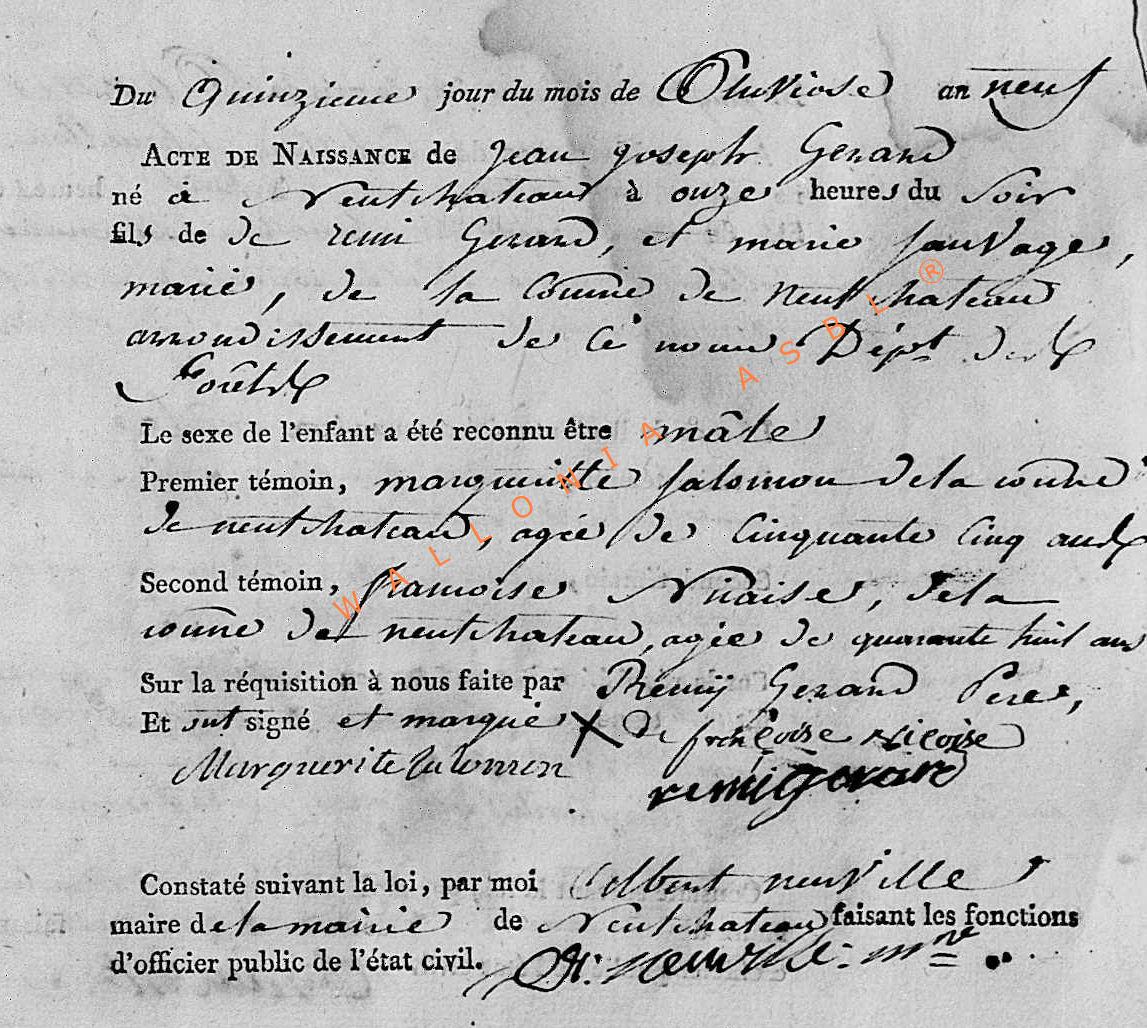 Du Quinzieme jour du mois de Pluviose an neuf
ACTE DE NAISSANCE de Jean joseph Gerard
né à Neufchateau à onze heures du Soir
fils de de remi Gerard, et marie Sauvage,
marié, de la Coune de neufchateau
arrondissement de Ce nom Dépt des
Forêts
Le sexe de l'enfant a été reconnu être mâle
Premier témoin, margueritte Salomon de la coune
de neufchateau, agée de Cinquante Cinq ans
Second témoin, francoise Nicaise, dela
coune de neufchateau, agée de quarante huit ans
Sur la réquisition à nous faite par Rémÿ Gerard Pere,
Et ont signé et marqué X de françoise nicoise
Marguerite Salomon
remi gerard
Constaté suivant la loi, par moi neuville
maire de la mairie de Neufchateau faisant les fonctions
d'officier public de l'état civil. neuville mre
WALLONIA ASBL ®